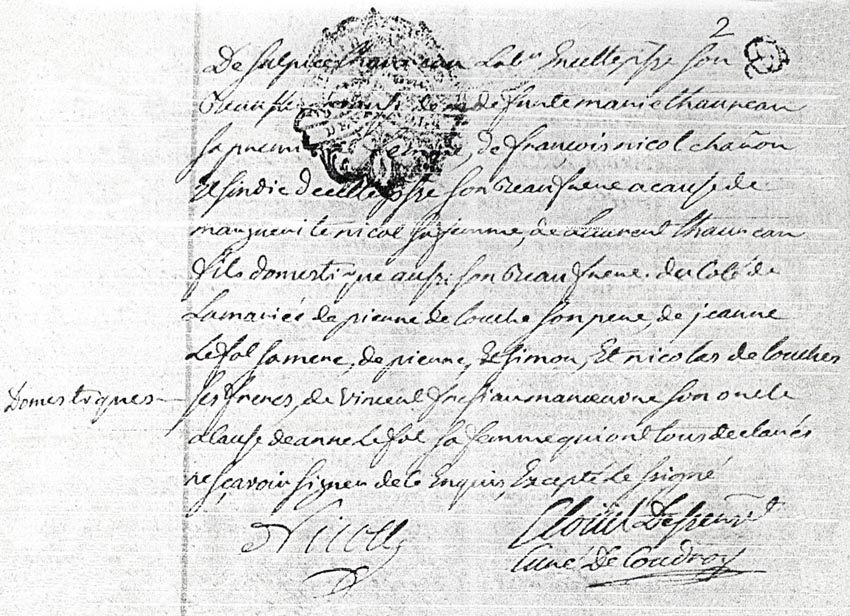 2
De Sulpice Thauneau Lab.r en cette psse son
beau frere de funte marie Thauneau
sa premi femme, de francois nicol chañon
et sindic de cette psse son beau frere a cause de
marguerite nicol sa femme, de Laurent Thauneau
fils domestique aussi son beau frere. du Coté de
La mariée de pierre de Couche son pere, de jeanne
Le fol sa mere, de pierre, et simon, et nicolas de Couches
Domestiques ses freres, de vincent manœuvre son oncle
a Cause de anne Le fol sa femme qui ont tous declarés
ne sçavoir signer de ce Enquis, Excepté Le signé
Nicol
Curé De Coudroy